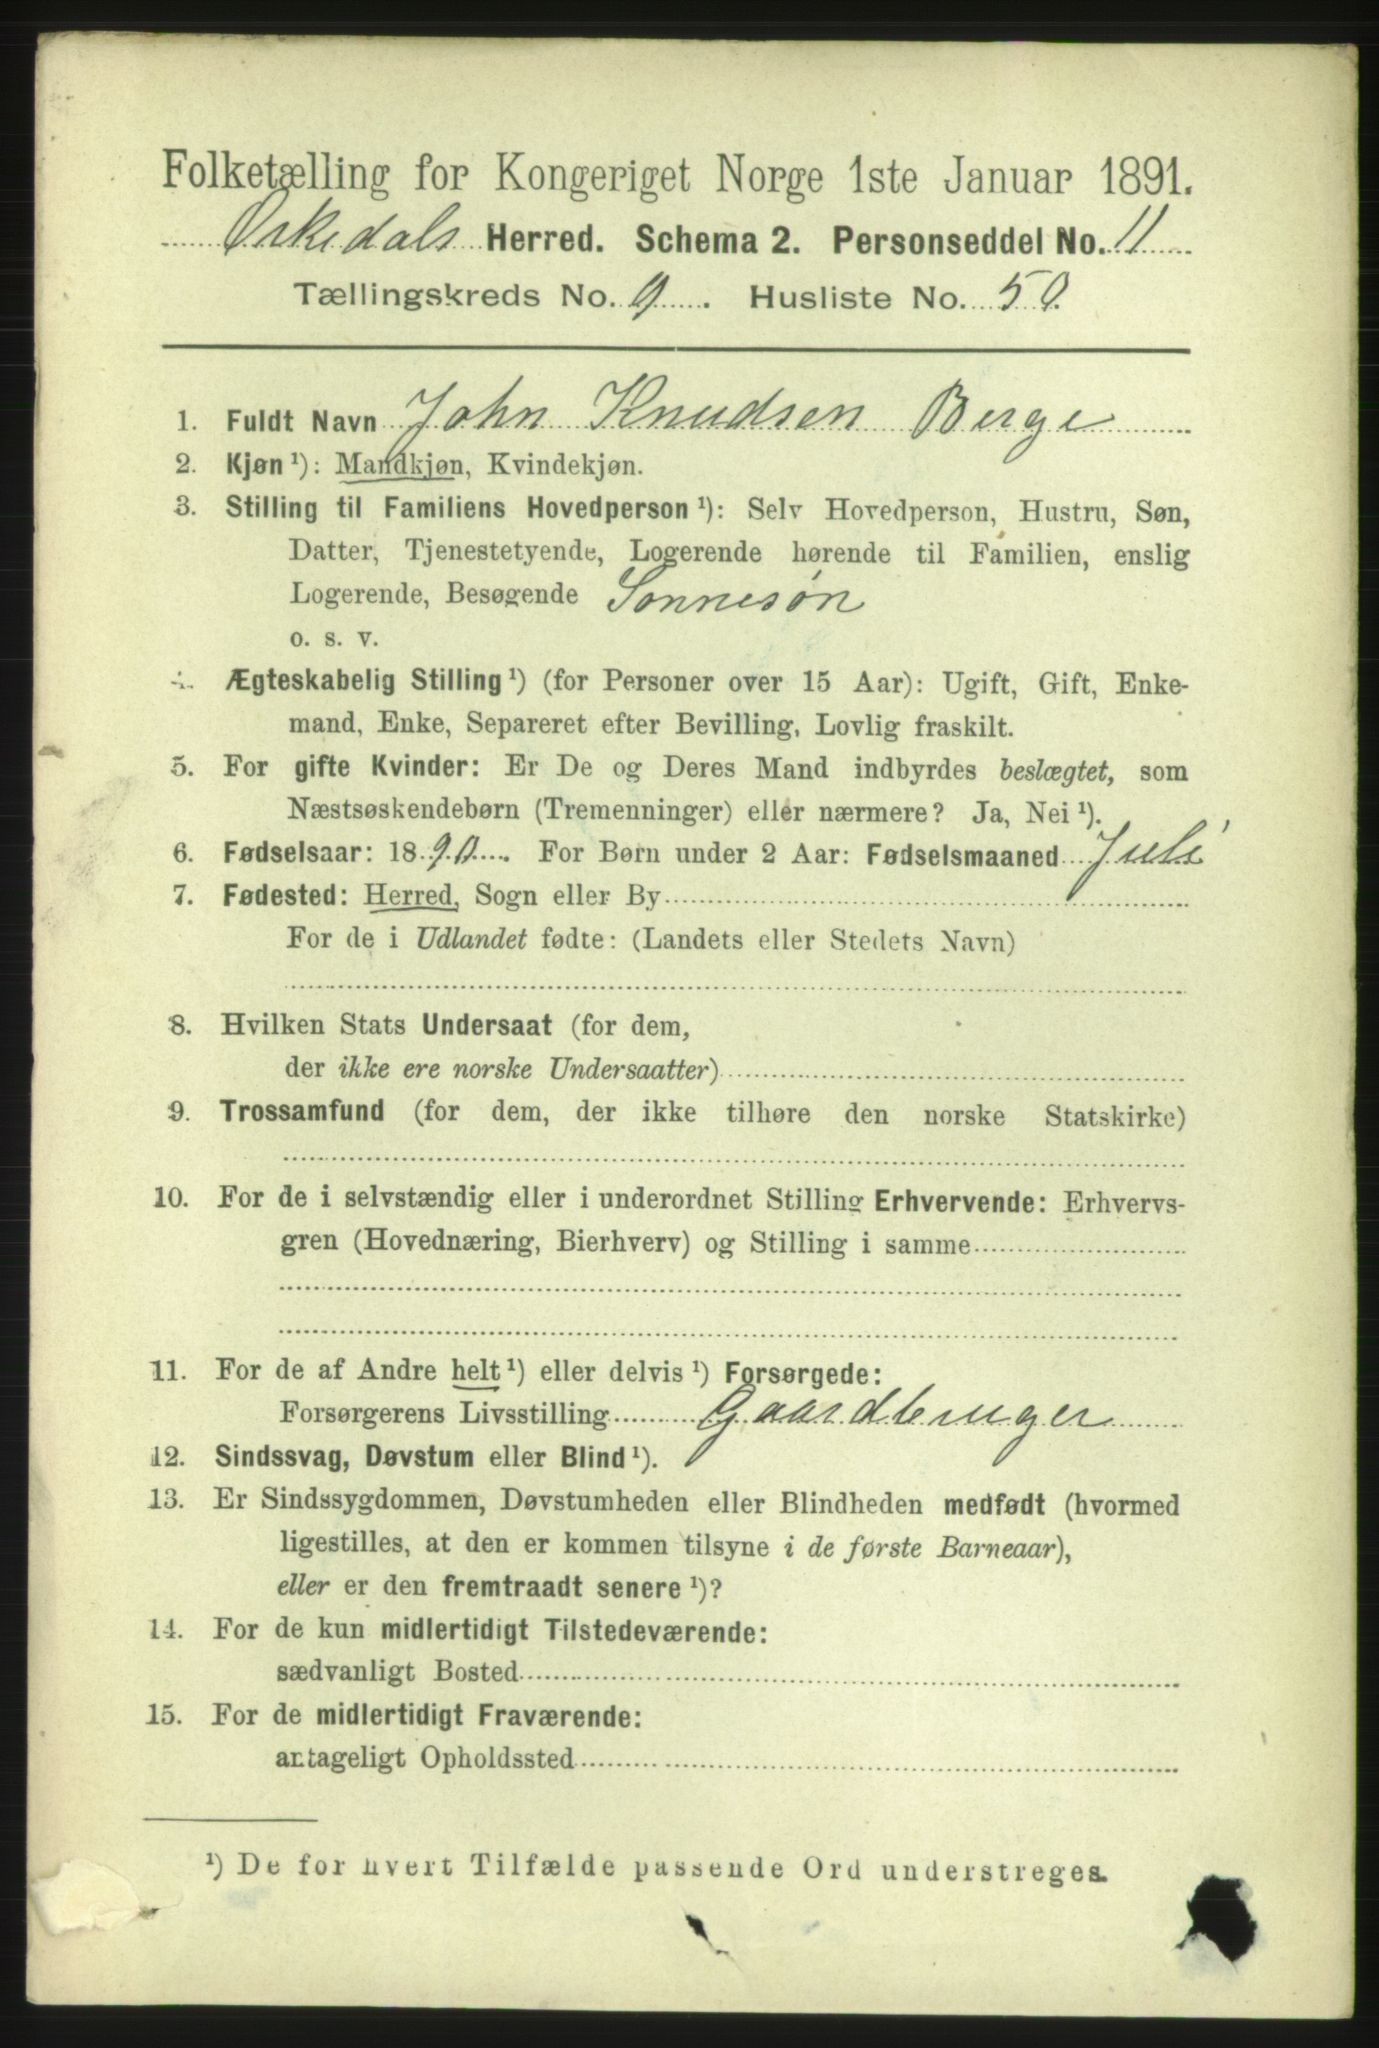 Folketælling for Kongeriget Norge 1ste Januar 1891.
Orkedals Herred. Schema 2. Personseddel No. 11
Tællingskreds No. 9. Husliste No. 50.
1. Fuldt Navn John Knudsen Berge
2. Kjøn¹): Mandkjøn, Kvindekjøn.
3. Stilling til Familiens Hovedperson¹): Selv Hovedperson, Hustru, Søn,
Datter, Tjenestetyende, Logerende hørende til Familien, enslig
Logerende, Besøgende Sønnesøn
o. s. v.
4. Ægteskabelig Stilling¹) (for Personer over 15 Aar): Ugift, Gift, Enke-
mand, Enke, Separeret efter Bevilling, Lovlig fraskilt.
5. For gifte Kvinder: Er De og Deres Mand indbyrdes beslægtet, som
Næstsøskendebørn (Tremenninger) eller nærmere? Ja, Nei¹).
6. Fødselsaar: 1890. For Børn under 2 Aar: Fødselsmaaned Juli
7. Fødested: Herred, Sogn eller By
For de i Udlandet fødte: (Landets eller Stedets Navn)
8. Hvilken Stats Undersaat (for dem,
der ikke ere norske Undersaatter)
9. Trossamfund (for dem, der ikke tilhøre den norske Statskirke)
10. For de i selvstændig eller i underordnet Stilling Erhvervende: Erhvervs-
gren (Hovednæring, Bierhverv) og Stilling i samme
11. For de af Andre helt¹) eller delvis¹) Forsørgede:
Forsørgerens Livsstilling Gaardbruger
12. Sindssvag, Døvstum eller Blind¹).
13. Er Sindssygdommen, Døvstumheden eller Blindheden medfødt (hvormed
ligestilles, at den er kommen tilsyne i de første Barneaar),
eller er den fremtraadt senere¹)?
14. For de kun midlertidigt Tilstedeværende:
sædvanligt Bosted
15. For de midlertidigt Fraværende:
antageligt Opholdssted
¹) De for hvert Tilfælde passende Ord understreges.